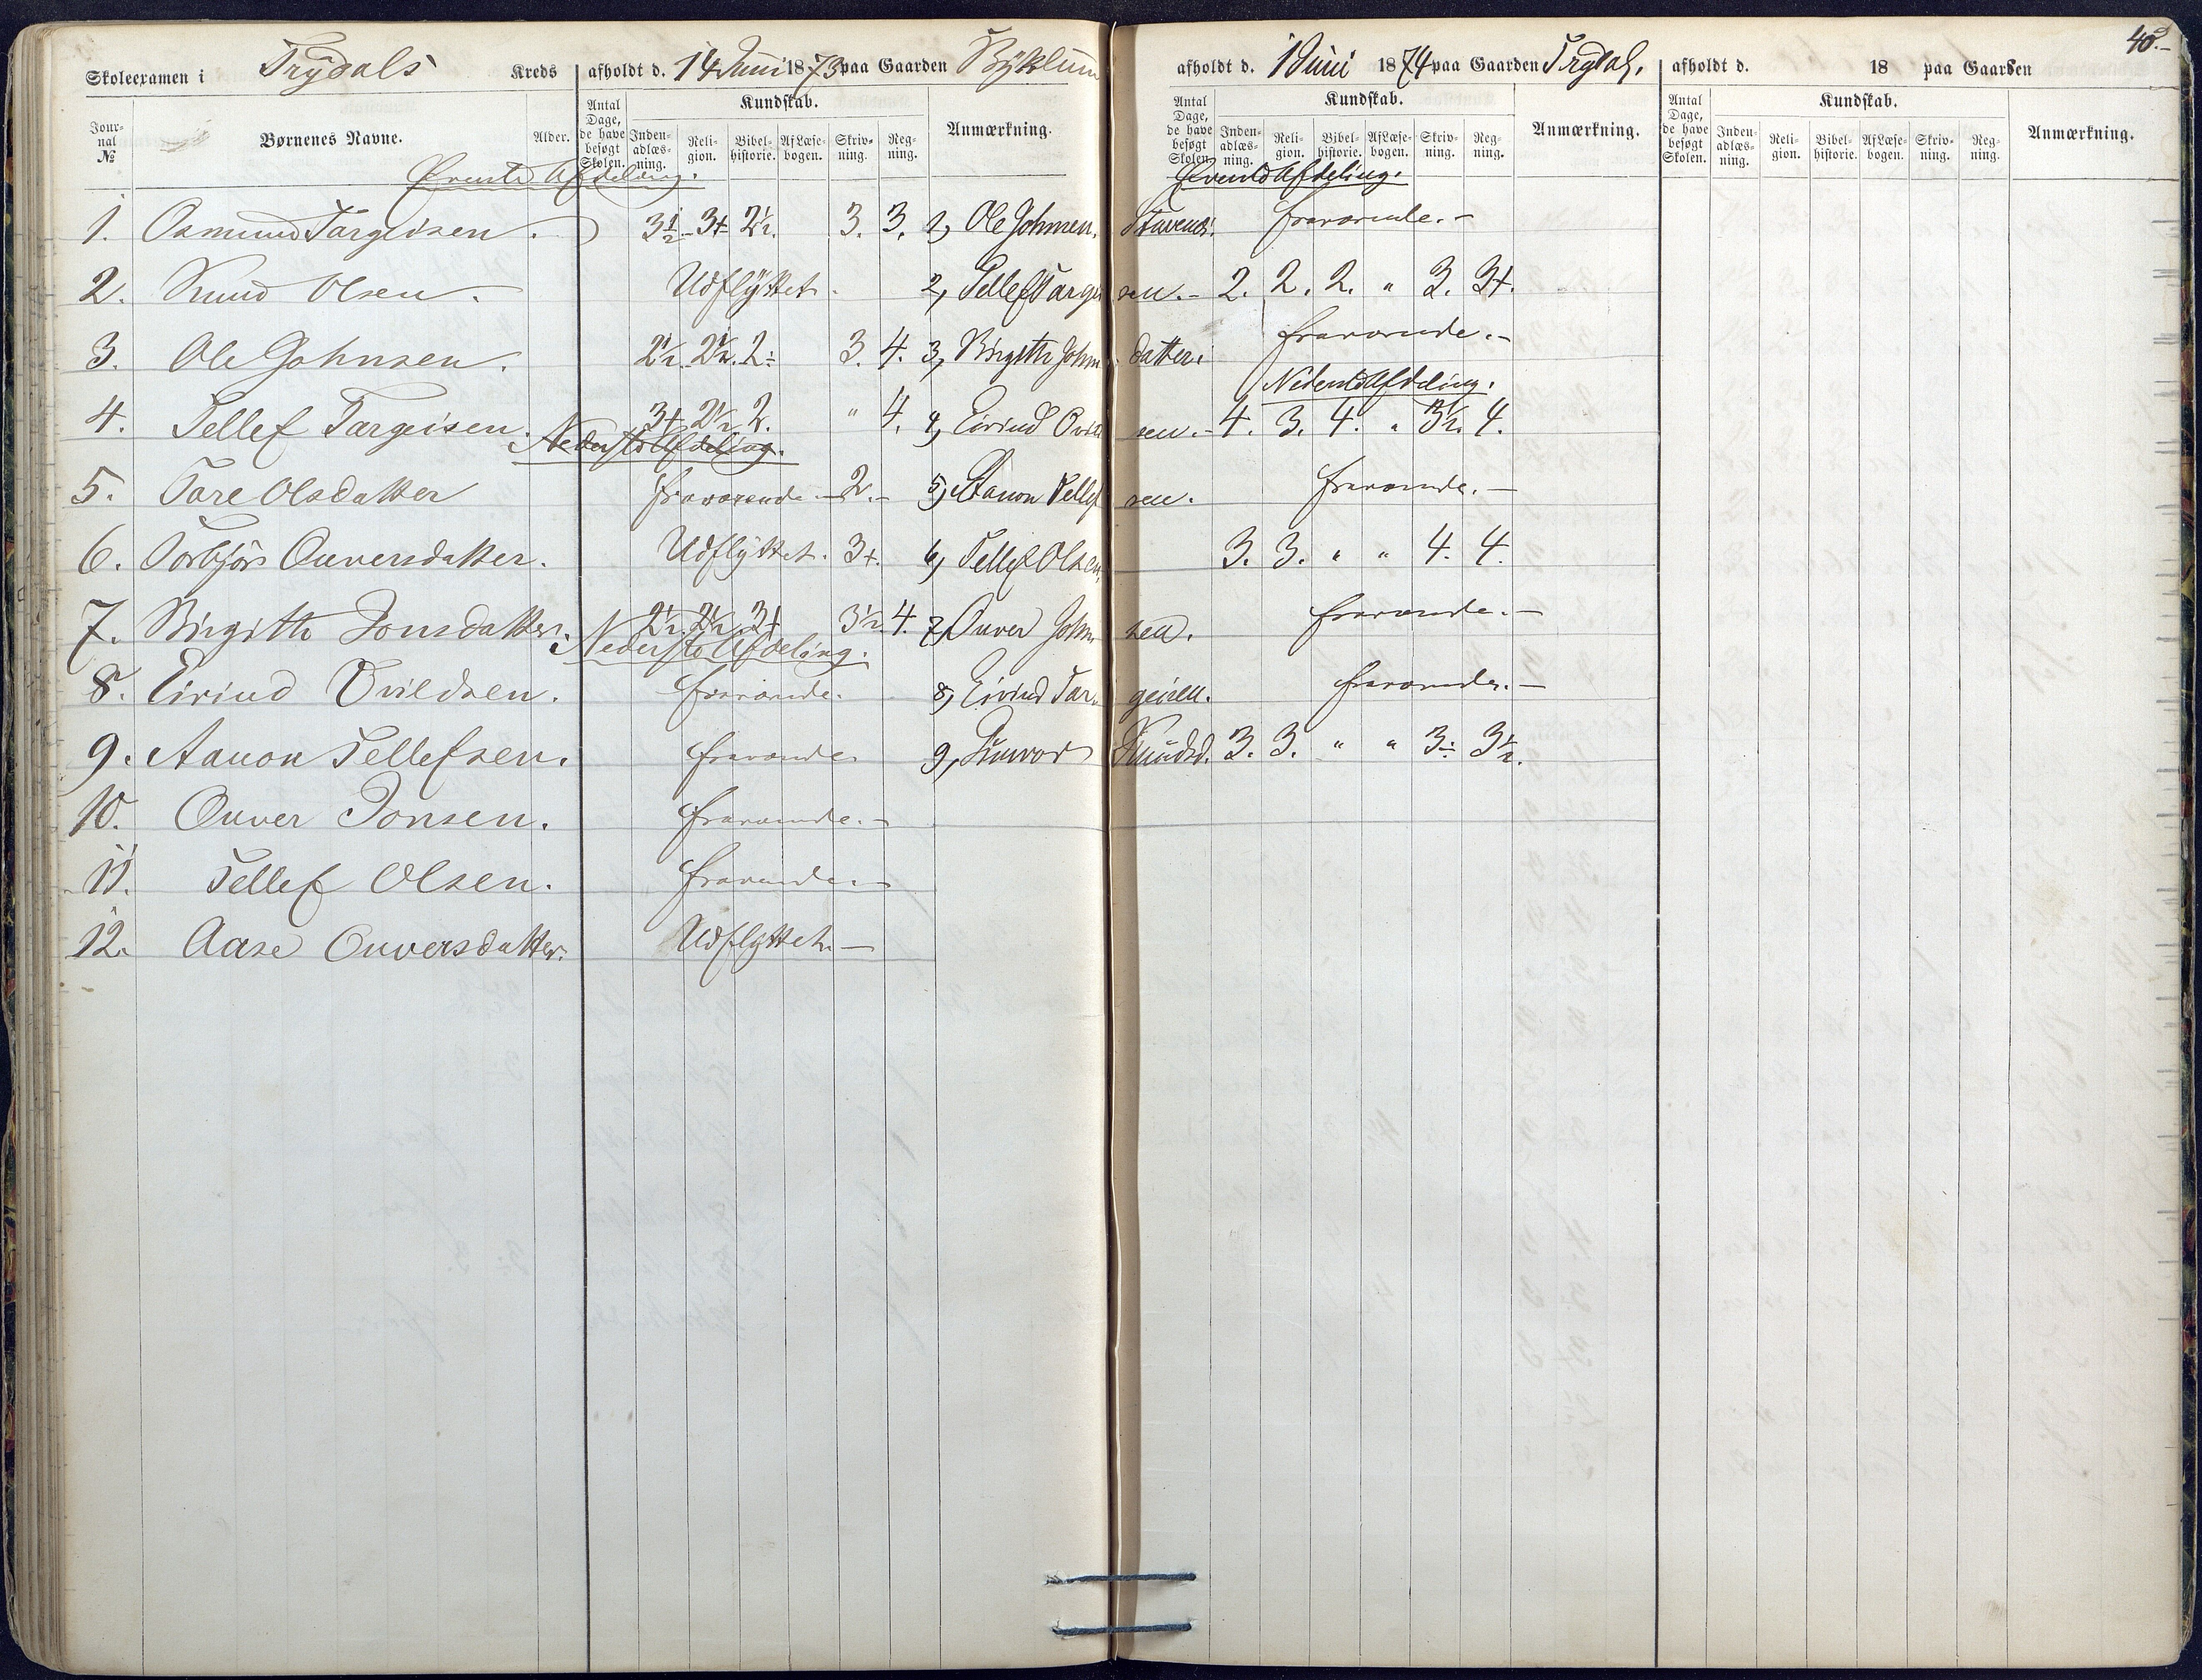 40.-
Skoleexamen i Trydals Kreds afholdt d. 14 Juni 1873 paa Gaarden Byklum
afholdt d. 1 Juni 1874 paa Gaarden Trydal.
afholdt d. 18 paa Gaarden
Journal № Børnenes Navne. Alder. Antal Dage, de have besøgt Skolen. Kundskab. Indenadlæsning. Religion. Bibelhistorie. Af Læsebogen. Skrivning. Regning. Anmærkning.
Antal Dage, de have besøgt Skolen. Kundskab. Indenadlæsning. Religion. Bibelhistorie. Af Læsebogen. Skrivning. Regning. Anmærkning.
Antal Dage, de have besøgt Skolen. Kundskab. Indenadlæsning. Religion. Bibelhistorie. Af Læsebogen. Skrivning. Regning. Anmærkning.
Øverste Afdeling.
Øverste Afdeling.
1. Osmund Targeisen. 3½ 3+ 2½. 3. 3. 1, Ole Johnsen, fraværende.-
2. Knud Olsen. Udflyttet. 2, Tellef Targeisen.- 2. 2. 2. " 3. 3+.
3. Ole Johnsen. 2½. 2½. 2÷ 3. 4. 3, Birgithe Johnsdatter. fraværende.-
Nederste Afdeling.
4. Tellef Targeisen. 3+ 2½ 2. " 4. 4, Eivind Ovildsen.- 4. 3. 4. " 3½. 4.
Nederste Afdeling.
5. Tore Olsdatter fraværende.- 2.- 5, Aanon Tellefsen. fraværende.-
6. Torbjør Ouversdatter. Udflyttet. 3+. 6, Tellef Olsen, 3. 3. " " 4. 4.
7. Birgithe Jonsdatter. 2½. 2½ 3+ 3½ 4. 7, Ouver Johnsen. fraværende.-
Nederste Afdeling.
8. Eivind Ovildsen. fraværende. 8, Eivind Targeisen. fraværende.-
9. Aanon Tellefsen. fraværende 9, Gunvor Knudsd. 3. 3. " " 3÷ 3½.
10. Ouver Jonsen. fraværende.-
11. Tellef Olsen. fraværende.-
12. Aase Ouversdatter. Udflyttet.-